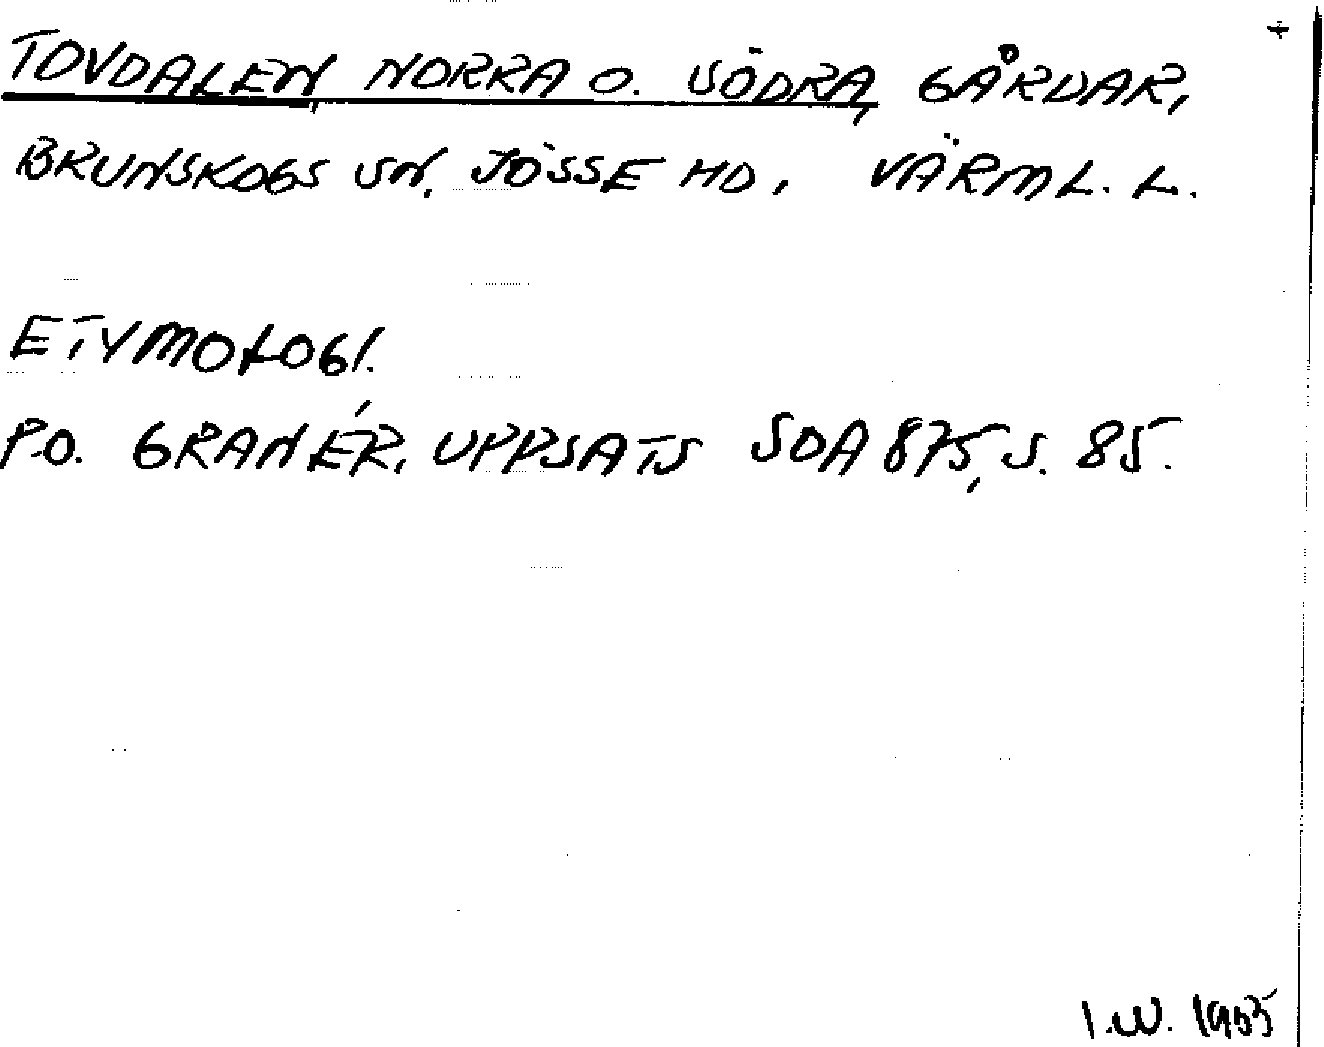 +
TOVDALEN, NORRA O. SÖDRA, GÅRDAR,
BRUNSKOGS SN, JÖSSE HD, VÄRML. L.
ETYMOLOGI.
P.O. GRANÉR, UPPSATS SOA 875, S. 85.
I.W. 1955